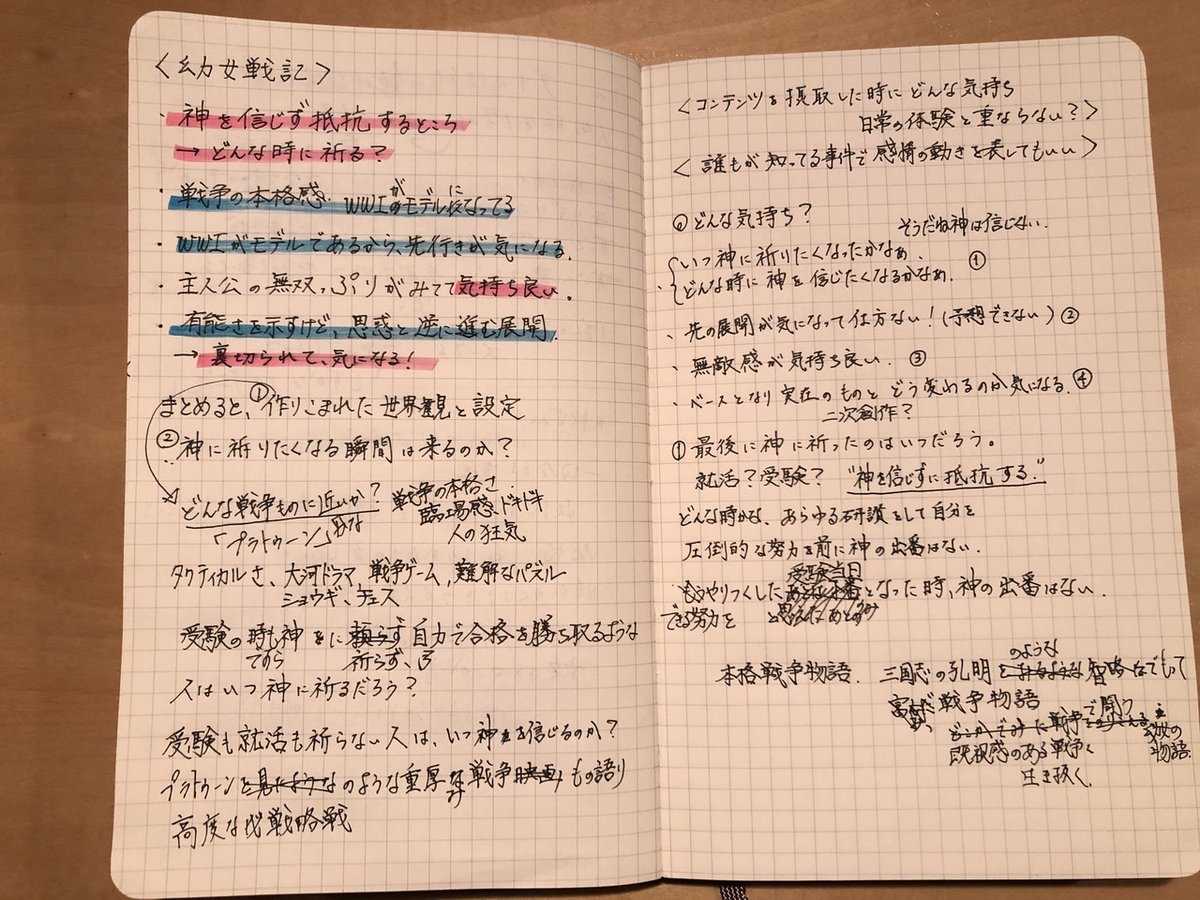 〈幼女戦記〉
・神を信じず抵抗するところ
→どんな時に祈る?
・戦争の本格感. WWIがモデルになってる
・WWIがモデルであるから、先行きが気になる.
・主人公の無双っぷりがみてて気持ち良い.
・有能さを示すけど、思惑と逆に進む展開.
→裏切られて、気になる!
まとめると、①作りこまれた世界観と設定
②神に祈りたくなる瞬間は来るのか?
どんな戦争ものに近いか?
「プラトゥーン」
戦争の本格さ.
臨場感、ドキドキ
人の狂気
タクティカルさ、大河ドラマ、戦争ゲーム、難解なパズル
ショウギ、チェス
受験の時も神に頼らず自力で合格を勝ち取るような
ですら 祈らず、
人はいつ神に祈るだろう?
受験も就活も祈らない人は、いつ神を信じるのか?
プラトゥーンのような重厚な戦争映画もの語り
高度な戦略戦
〈コンテンツを摂取した時にどんな気持ち
日常の体験と重ならない?〉
〈誰もが知ってる事件で感情の動きを表してもいい〉
◎どんな気持ち?
そうだね神は信じない.
いつ神に祈りたくなったかなぁ
・どんな時に神を信じたくなるかなぁ. ①
、先の展開が気になって仕方ない!(予想できない)②
、無敵感が気持ち良い. ③
・ベースとなり実在のものとどう変わるのか気になる.④
二次創作?
①最後に神に祈ったのはいつだろう。
就活?受験? "神を信じずに抵抗する."
どんな時かな、あらゆる研鑽をして自分を
圧倒的な努力を前に神の出番はない.
受験当日
もうやりつくした となった時、神の出番はない.
できる努力を
本格戦争物語. 三国志の孔明のような智略でもって
戦争物語
どこかでみた戦争で闘う
既視感のある戦争
の物語.
生き抜く.